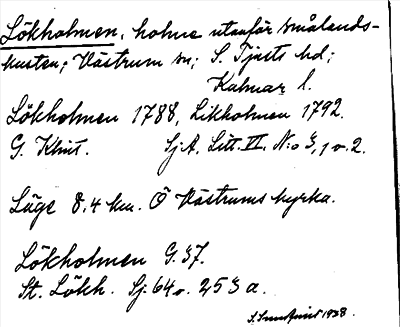 Lökholmen, holme utanför smålands-
kusten; Västrum sn; S. Tjusts hd;
Kalmar l.
Lökholmen 1788, Likholmen 1792.
G. Klint. Sj.A. Litt. VI. N:o 3, 1 o. 2.
Läge 8,4 km. Ö Västrums kyrka.
Lökholmen G. 37.
St. Lökh. Sj. 64 o. 253 a.
1938